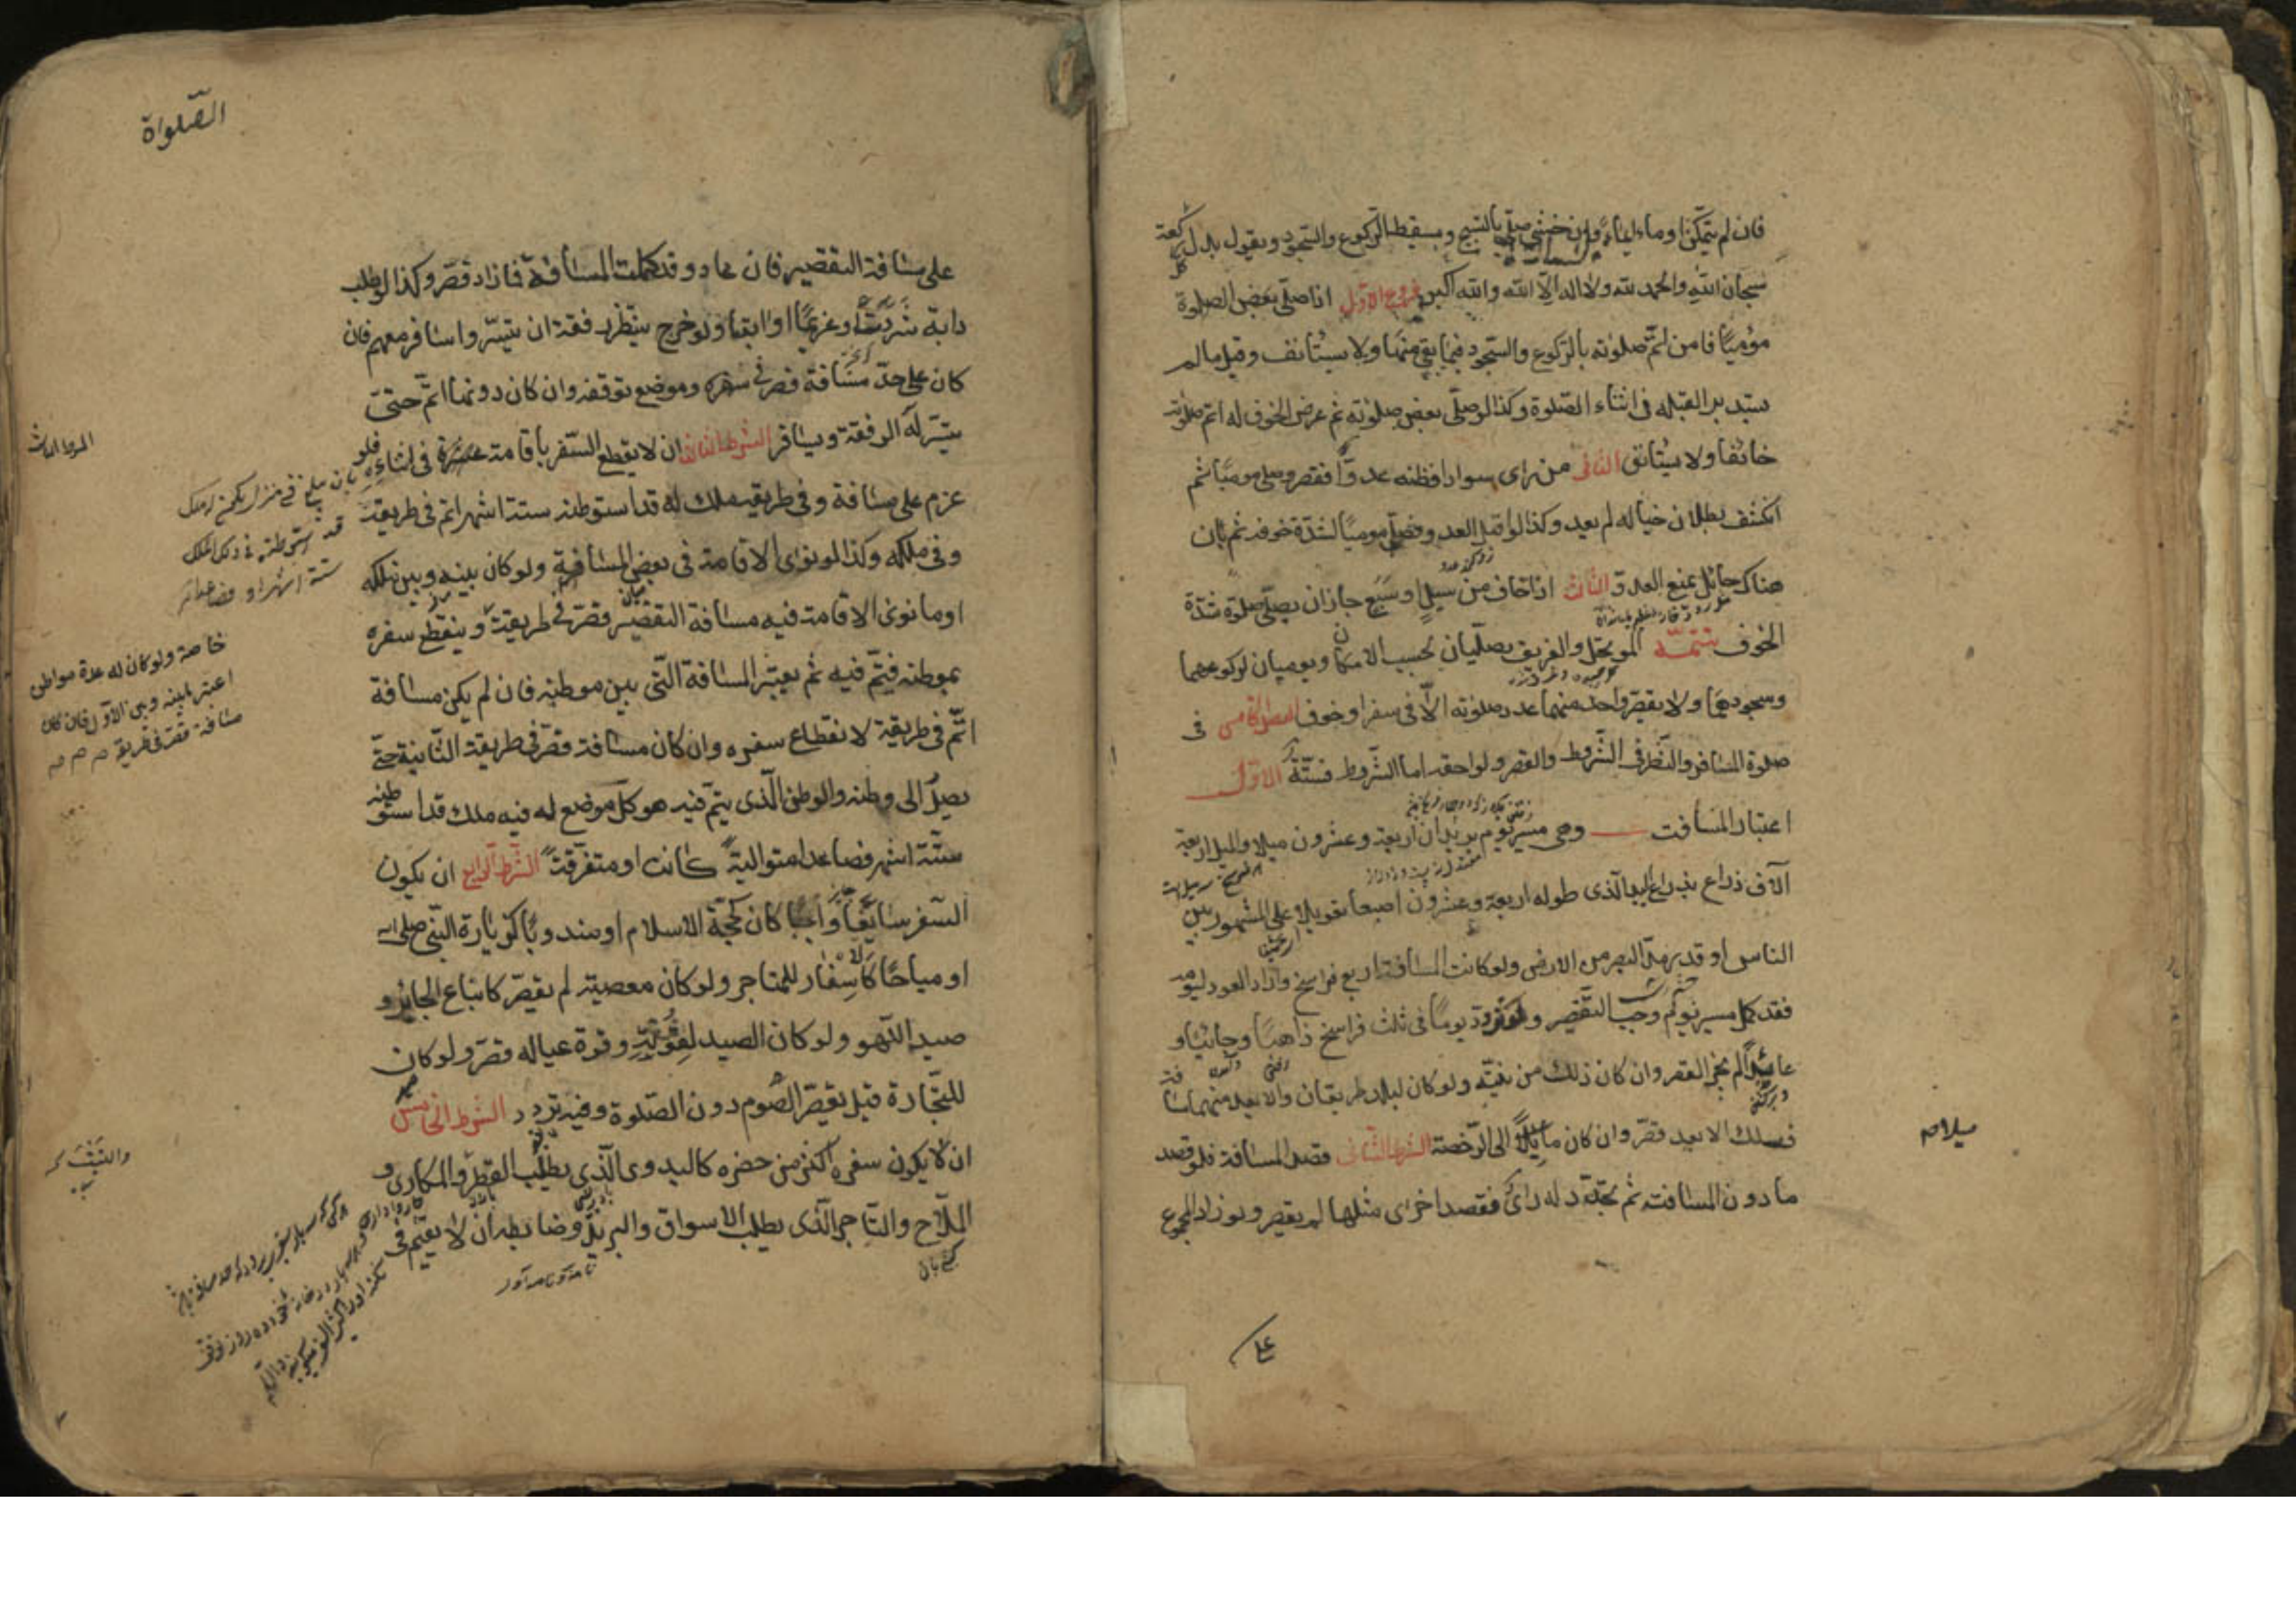 فان لم يتمكن اوماء ايماء فان خشى صلى بالتسبيح ويسقط الركوع والسجود ويقول بدل كل ركعة
سبحان الله والحمد لله ولا اله الا الله والله اكبر فروع الاول اذا صلى بعض الصلوة
مؤميا فامن اتم صلوته بالركوع والسجود فيما بقي منها ولا يستأنف وقيل ما لم
يستدبر القبله فى اثناء الصلوة وكذا لو صلى بعض صلوته ثم عرض الخوف له اتم صلوته
خائفا ولا يستأنف الثانى من راى سوادا فظنه عدوا فقصر وصلى موميا ثم
انكشف بطلان خياله لم يعد وكذا لو اقبل العدو فصلى موميا لشدة خوفه ثم بان
هناك حائل يمنع العدو الثالث اذا خاف من سيل او سبع جاز ان يصلى صلوة شدة
الخوف تتمة الموتحل والغريق يصليان بحسب الامكان ويوميان لركوعهما
وسجودهما ولا يقصر واحد منهما عدد صلوته الا فى سفر او خوف الفصل الخامس فى
صلوة المسافر والنظر فى الشروط والقصر ولواحقه اما الشروط فستة الاول
اعتبار المسافت وهى مسير يوم بريدان اربعة وعشرون ميلا والميل اربعة
آلاف ذراع بذراع اليد الذى طوله اربعة وعشرون اصبعا تعويلا على المشهور بين
الناس او قدر مد البصر من الارض ولو كانت المسافة اربع فراسخ واراد العود ليومه
فقد كمل مسير يوم وجب التقصير ولو تردد يوما فى ثلث فراسخ ذاهبا وجائيا و
عائدا لم يجز القصر وان كان ذلك من نيته ولو كان لبلد طريقان والابعد منهما مسافة
فسلك الابعد قصر وان كان مايلا الى الرخصة الشرط الثانى قصد المسافة فلو قصد
ميلا صح
ما دون المسافت ثم تجدد له راى فقصد اخرى مثلها لم يقصر ولو زاد المجموع
على
الصلواة
على مسافة التقصير فان عاد وقد كملت المسافة فما زاد قصر وكذا لو طلب
دابة شردت او غريما او ابقا ولو خرج ينتظر رفقة ان تيسروا سافر معهم فان
كان على حد مسافة قصر فى سفره وموضع توقفه وان كان دونها اتم حتى
يتيسر له الرفقة ويسافر الشرط الثالث ان لا يقطع السفر باقامة عشرة فى اثنائه فلو
عزم على مسافة وفى طريقه ملك له قد استوطنه ستة اشهر اتم فى طريقه
قد استوطنه فى ذلك الملك
ستة اشهر او فصاعدا
وفى ملكه وكذا لو نوى الاقامة فى بعض المسافة ولو كان بينه وبين ملكه
او ما نوى الاقامة فيه مسافة التقصير قصر فى طريقه وينقطع سفره
بموطنه فيتم فيه ثم يعتبر المسافة التى بين موطنيه فان لم يكن مسافة
خاصة ولو كان له عدة مواطن
اعتبر ما بينه وبين الاول فان كان
مسافة قصر فى طريقه صح
اتم فى طريقه لانقطاع سفره وان كان مسافة قصر فى طريقه الثانية حتى
يصل الى وطنه والوطن الذى يتم فيه هو كل موضع له فيه ملك قد استوطنه
ستة اشهر فصاعدا متوالية كانت او متفرقة الشرط الرابع ان يكون
السفر سايغا واجبا كان كحجة الاسلام او مندوبا كزيارة النبى صلى الله
او مباحا كالاسفار للمتاجر ولو كان معصية لم يقصر كاتباع الجائر و
صيد اللهو ولو كان الصيد لقوته وقوة عياله قصر ولو كان
للتجارة قيل يقصر الصوم دون الصلوة وفيه تردد الشرط الخامس
ان لا يكون سفره اكثر من حضره كالبدوى الذى يطلب القطر والمكارى و
الملاح والتاجر الذى يطلب الاسواق والبريد وضابطه ان لا يقيم فى